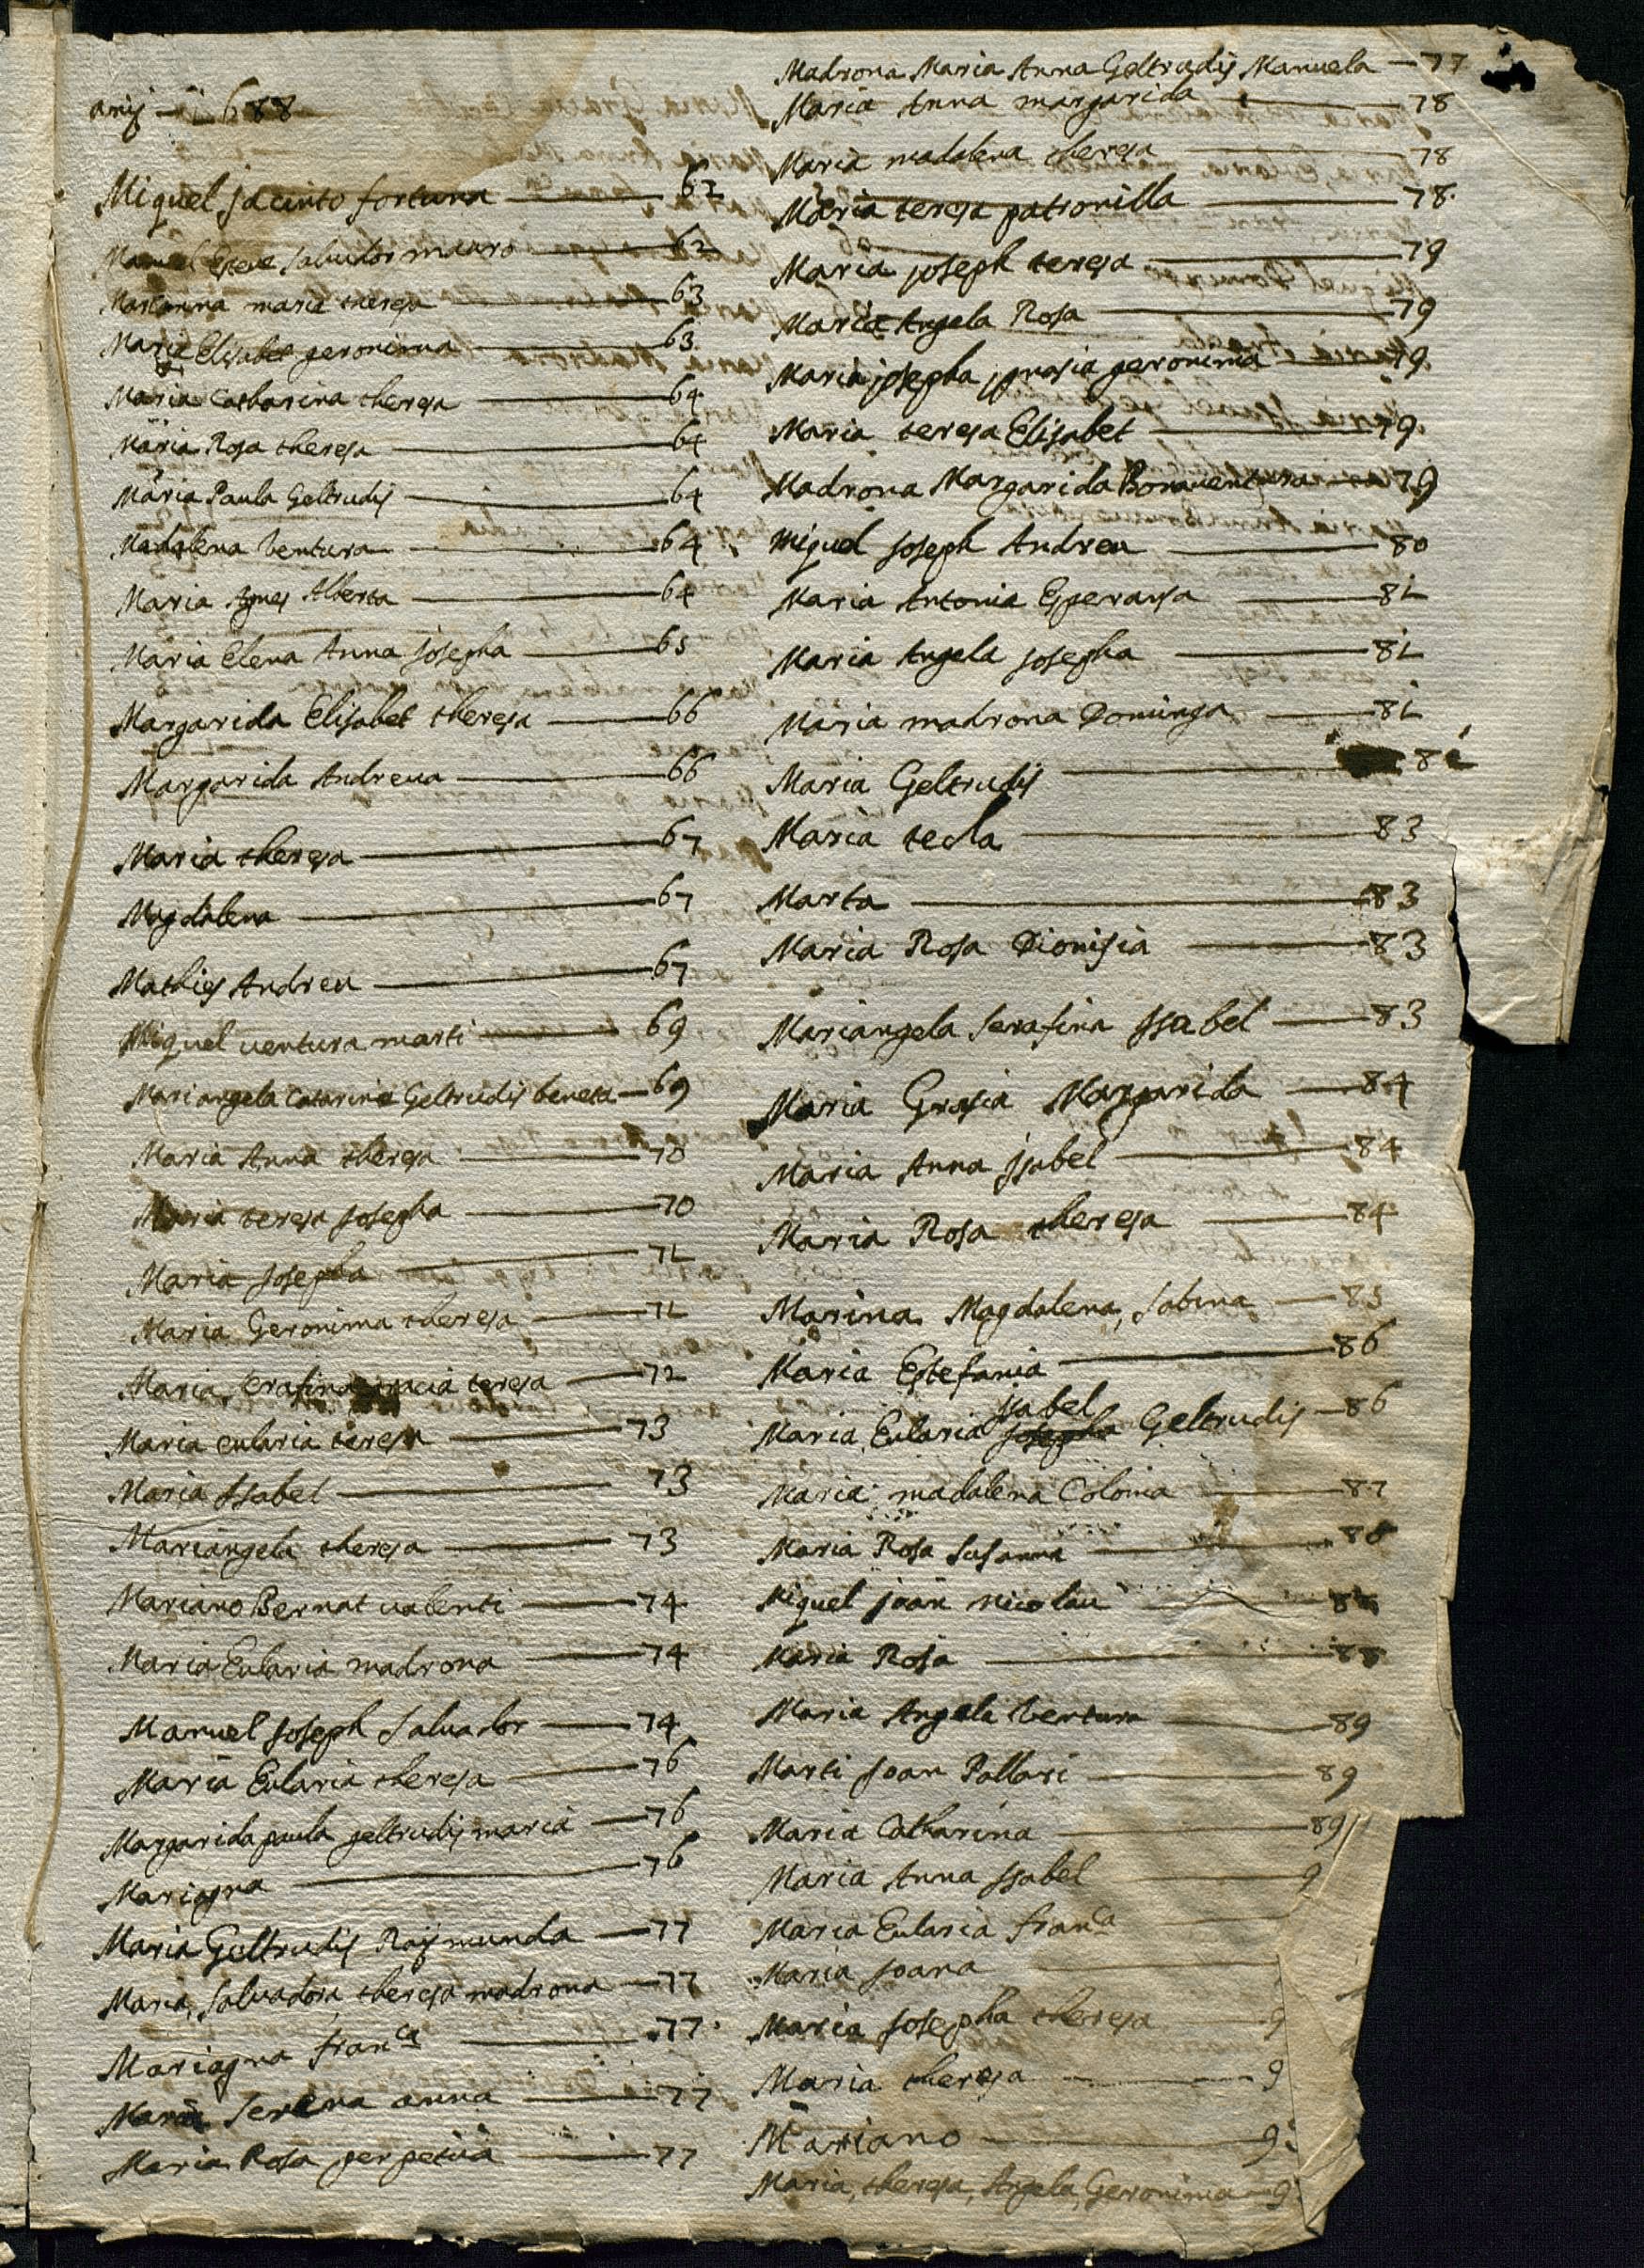 anÿ — 1688
Miquel jacinto fortuna — 62
Manuel Esteve Salvador mauro — 62
Marianna maria theresa — 63
Maria Elisabet geronima — 63
Maria Catharina theresa — 64
Maria Rosa theresa — 64
Maria Paula Geltrudis — 64
Madalena Ventura — 64
Maria Agnes Alberta — 64
Maria Elena Anna Josepha — 65
Margarida Elisabet theresa — 66
Margarida Andreua — 66
Maria theresa — 67
Magdalena — 67
Mathies Andreu — 67
Miquel ventura marti — 69
Mariangela Catarina Geltrudis beneta — 69
Maria Anna theresa — 70
Maria teresa Josepha — 70
Maria Josepha — 71
Maria Geronima theresa — 71
Maria Serafina gracia teresa — 72
Maria eularia teresa — 73
Maria Isabel — 73
Mariangela theresa — 73
Mariano Bernat valenti — 74
Maria Eularia madrona — 74
Manuel Joseph Salvador — 74
Maria Eularia theresa — 76
Margarida paula geltrudis maria — 76
Mariagna — 76
Maria Geltrudis Raÿmunda — 77
Maria, Salvadora, theresa madrona — 77
Mariagna franca — 77
Maria Serena anna — 77
Maria Rosa perpetua — 77
Madrona Maria Anna Geltrudis Manuela — 77
Maria Anna margarida — 78
Maria madalena theresa — 78
Maria teresa patronilla — 78
Maria joseph teresa — 79
Maria Angela Rosa — 79
Maria josepha ignasia geronima — 79
Maria teresa Elisabet — 79
Madrona Margarida Bonaventura — 79
Miquel Joseph Andreu — 80
Maria Antonia Esperansa — 81
Maria Angela Josepha — 81
Maria madrona Dominga — 81
Maria Geltrudis — 81
Maria tecla — 83
Marta — 83
Maria Rosa Dionisia — 83
Mariangela Serafina Isabel — 83
Maria Grasia Margarida — 84
Maria Anna Isabel — 84
Maria Rosa theresa — 84
Marina Magdalena, Sabina — 85
Maria Estefania — 86
Isabel
Maria, Eularia Josepha Geltrudis — 86
Maria madalena Colonia — 87
Maria Rosa Susanna — 88
Miquel joan nicolau — 88
Maria Rosa — 88
Maria Angela Ventura — 89
Marti Joan Pallari — 89
Maria Catharina — 89
Maria Anna Isabel — 9
Maria Eularia franca —
Maria Joana —
Maria Josepha theresa — 9
Maria theresa — 9
Mariano — 9
Maria, theresa, Angela, Geronima — 9